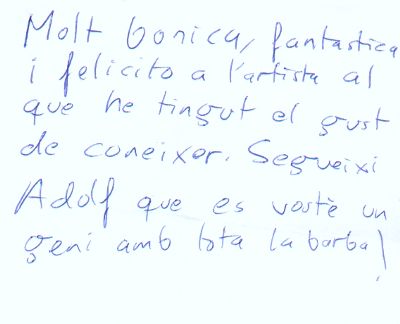 Molt bonica, fantastica
i felicito a l'artista al
que he tingut el gust
de coneixer. Segueixi
Adolf que es vostè un
geni amb tota la barba!